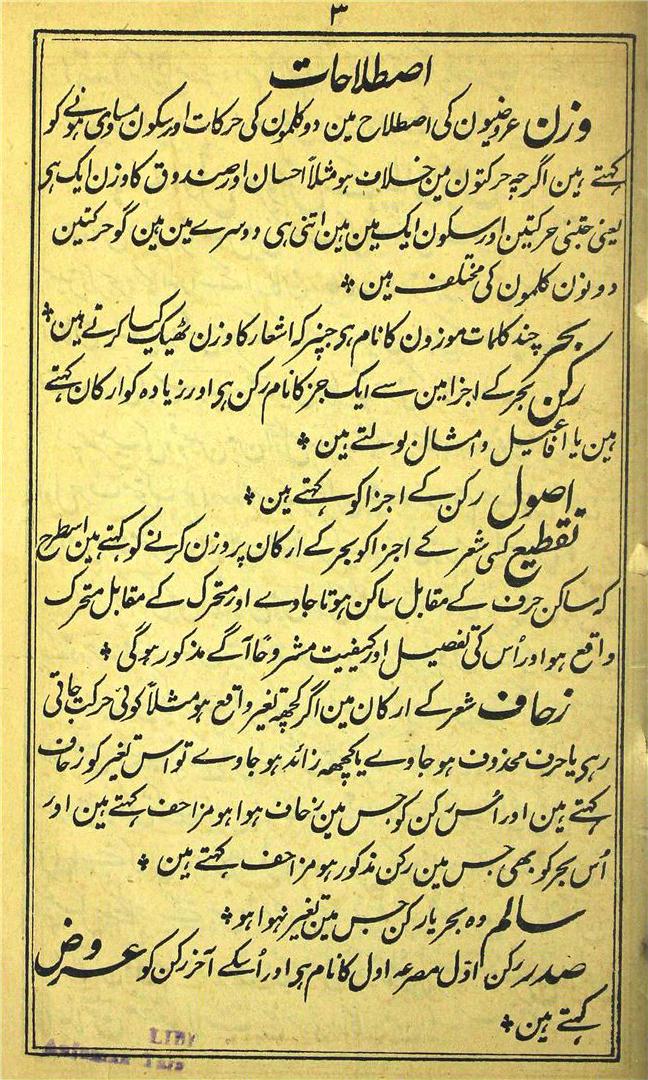 ۳
اصطلاحات
وزن عروضیون کی اصطلاح مین دو کلمون کی حرکات اور سکون مساوی ہونے کو
کہتے ہین اگرچہ حرکتون مین خلاف ہو مثلاً احسان اور صندوق کا وزن ایک ہی
یعنی جتنی حرکتین اور سکون ایک مین ہین اتنی ہی دوسرے مین ہین گو حرکتین
دونون کلمون کی مختلف ہین *
بحر چند کلمات موزون کا نام ہی جنپر کہ اشعار کا وزن ٹھیک کیا کرتے ہین *
رکن بحر کے اجزا مین سے ایک جز کا نام رکن ہی اور زیادہ کو ارکان کہتے
ہین یا افاعیل و امثال بولتے ہین *
اصول رکن کے اجزا کو کہتے ہین *
تقطیع کسی شعر کے اجزا کو بحر کے ارکان پر وزن کرنے کو کہتے ہین اسطرح
کہ ساکن حرف کے مقابل ساکن ہوتا جاوے اور متحرک کے مقابل متحرک
واقع ہو اور اُس کی تفصیل اور کیفیت مشروحًا آگے مذکور ہوگی *
زحاف شعر کے ارکان مین اگر کچھ تغیر واقع ہو مثلاً کوئی حرکت جاتی
رہی یا حرف محذوف ہو جاوے یا کچھہ زائد ہو جاوے تو اس تغیر کو زحاف
کہتے ہین اور اُس رکن کو جس مین زحاف ہوا ہو مزاحف کہتے ہین اور
اُس بحر کو بھی جس مین رکن مذکور ہو مزاحف کہتے ہین *
سالم وہ بحر یا رکن جس مین تغیر نہوا ہو *
صدر رکن اوّل مصرعہ اول کا نام ہی اور اُسکے آخر رکن کو عروض
کہتے ہین *